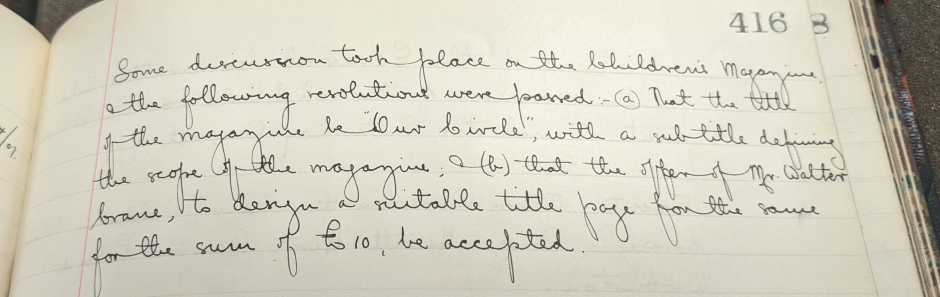 416
Some discussion took place on the Children's Magazine
& the following resolutions were passed:- (a) That the title
of the magazine be "Our Circle", with a subtitle defining
the scope of the magazine; & (b) that the offer of Mr. Walter
Crane, to design a suitable title page for the same
for the sum of £10, be accepted.